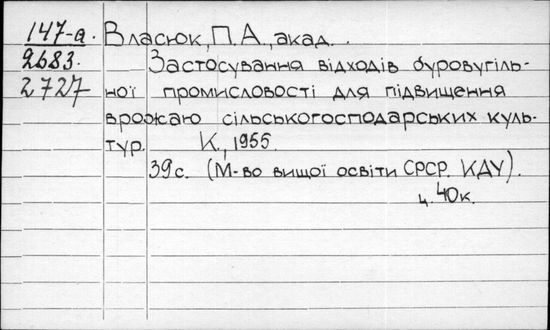 147-а. Власюк, П.А., акад.
2683. Застосування відходів буровугіль-
2727 ної промисловості для підвищення
врожаю сільськогосподарських куль-
тур. К., 1955
39 с. (М-во вищої освіти СРСР. КДУ).
ц. 40к.